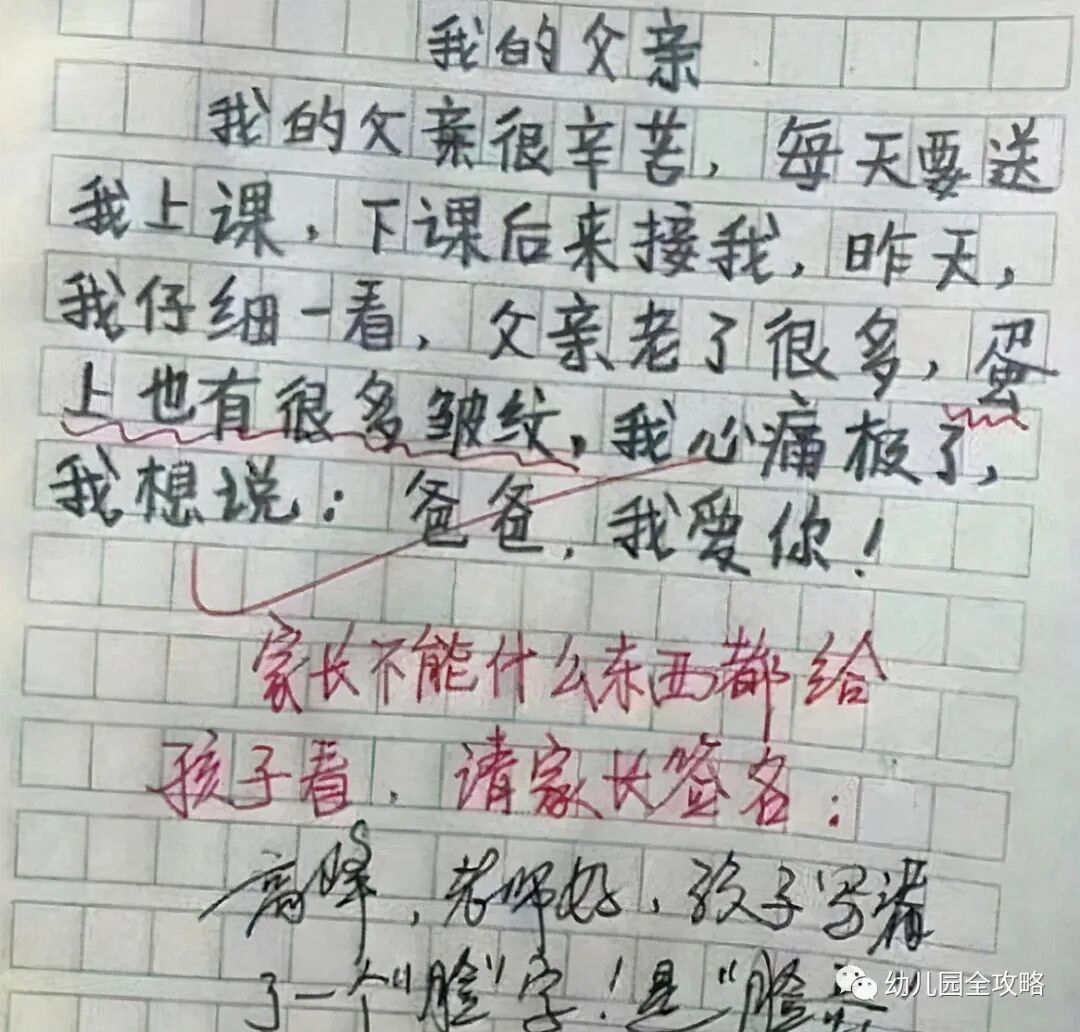 我的父亲
我的父亲很辛苦，每天要送
我上课，下课后来接我，昨天，
我仔细一看，父亲老了很多，蛋
上也有很多皱纹，我心痛极了，
我想说：爸爸，我爱你！
家长不能什么东西都给
孩子看，请家长签名：
高峰，老师好，孩子写错
了一个“脸”字！是“脸
幼儿园全攻略